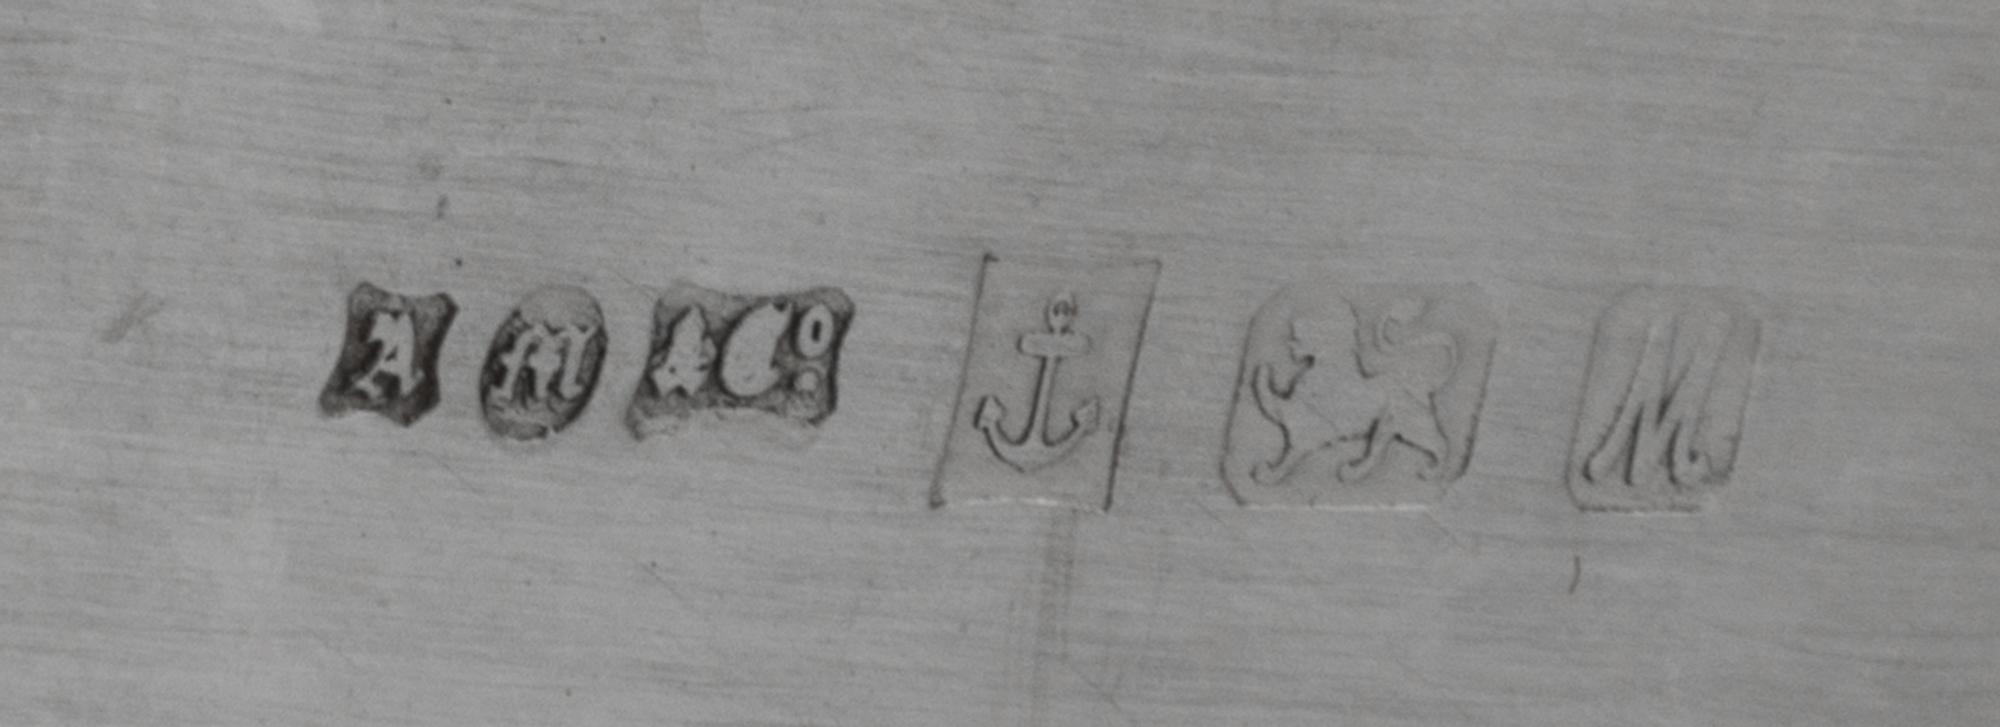 A M & Co. M